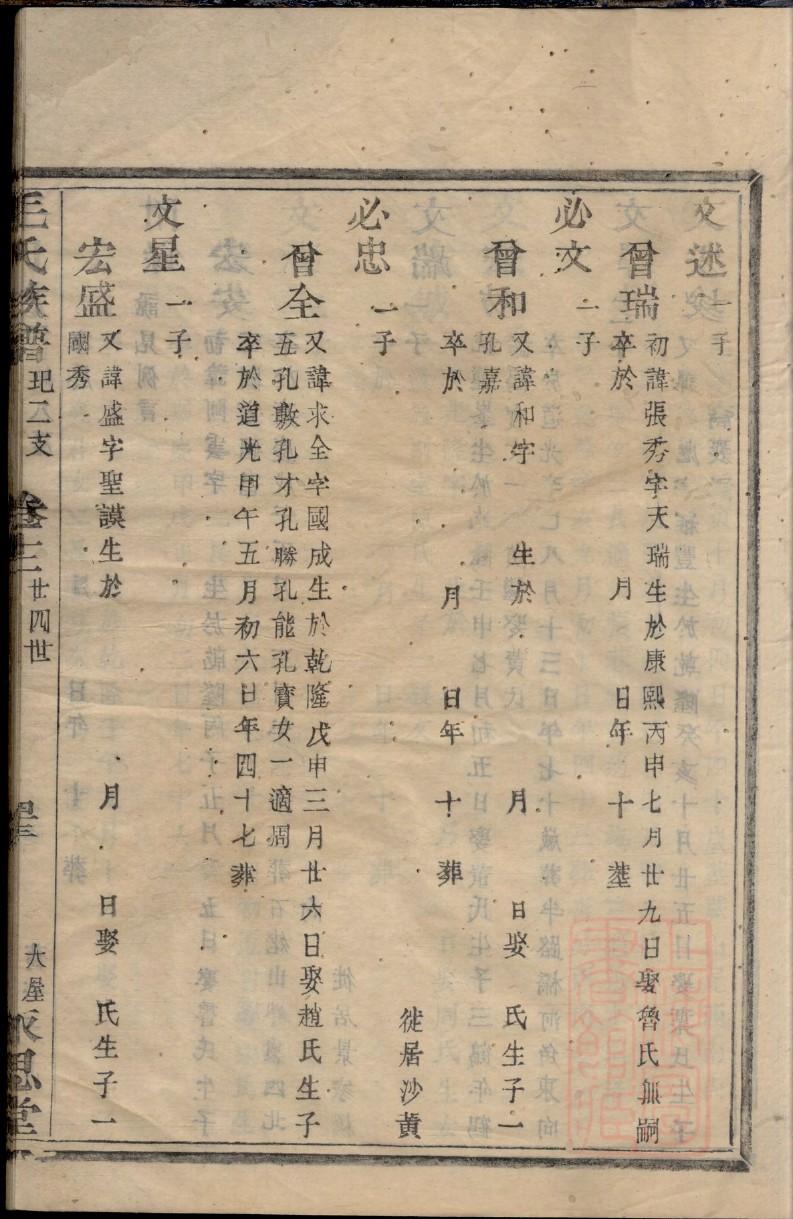 文述 一子
曾瑞 初諱張秀字天瑞生於康熙丙申七月廿九日娶魯氏無嗣
卒於 月 日年 十 塟
必文 一子
曾和 又諱和字 生於 月 日娶 氏生子一
孔嘉
卒於 月 日年 十 葬
徙居沙黄
必忠 一子
曾全 又諱求全字國成生於乾隆戊申三月廿六日娶趙氏生子
五孔敷孔才孔勝孔能孔寶女一適周
卒於道光甲午五月初六日年四十七葬
文星 一子
宏盛 又諱盛字聖謨生於 月 日娶 氏生子一
國秀
王氏族譜 玘二支 卷三 廿四世 大屋